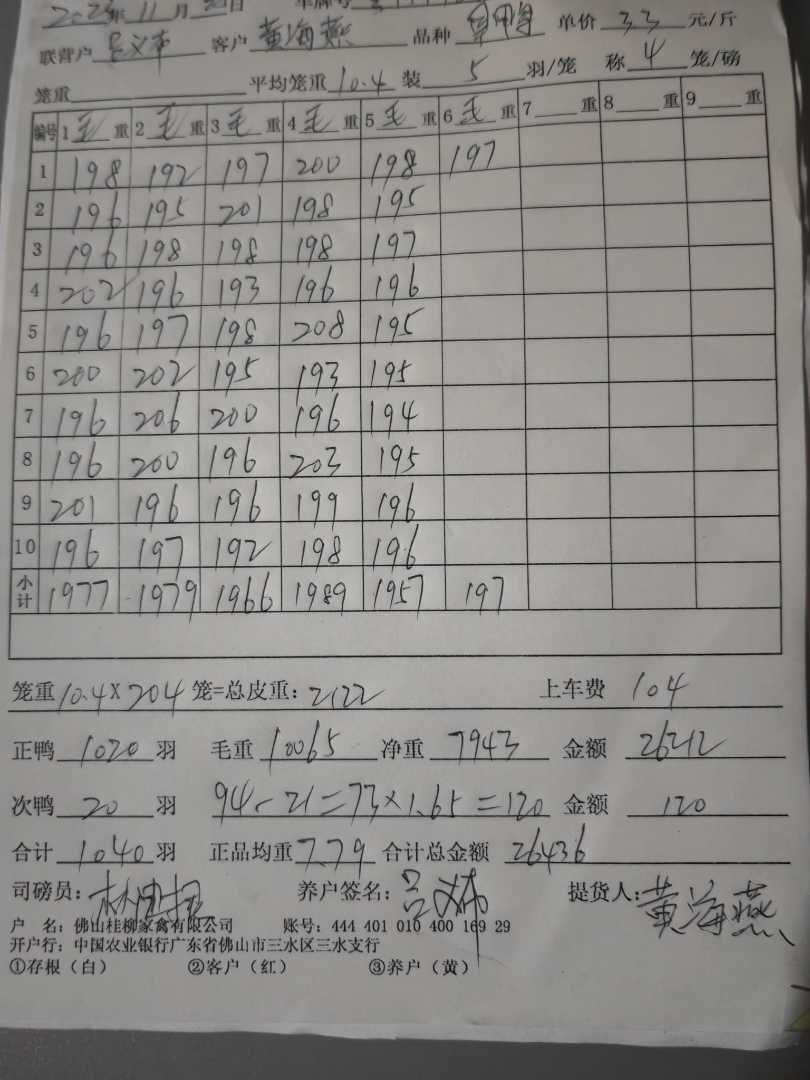 2023年11月 日
联营户 吕义韦 客户 黄海燕 品种 单价 3.3 元/斤
笼重 平均笼重 10.4 装 5 羽/笼 称 4 笼/磅
编号 1 毛 重 2 毛 重 3 毛 重 4 毛 重 5 毛 重 6 毛 重 7 重 8 重 9 重
1 198 192 197 200 198 197
2 196 195 201 198 195
3 196 198 198 198 197
4 202 196 193 196 196
5 196 197 198 208 195
6 200 202 195 193 195
7 196 206 200 196 194
8 196 200 196 203 195
9 201 196 196 199 196
10 196 197 192 198 196
小计 1977 1979 1966 1989 1957 197
笼重 10.4 X 204 笼=总皮重: 2122 上车费 104
正鸭 1020 羽 毛重 10065 净重 7943 金额 26212
次鸭 20 羽 94-21=73×1.65=120 金额 120
合计 1040 羽 正品均重 7.79 合计总金额 26436
司磅员: 养户签名: 提货人: 黄海燕
户 名: 佛山桂柳家禽有限公司 账号: 444 401 010 400 169 29
开户行: 中国农业银行广东省佛山市三水区三水支行
①存根（白） ②客户（红） ③养户（黄）